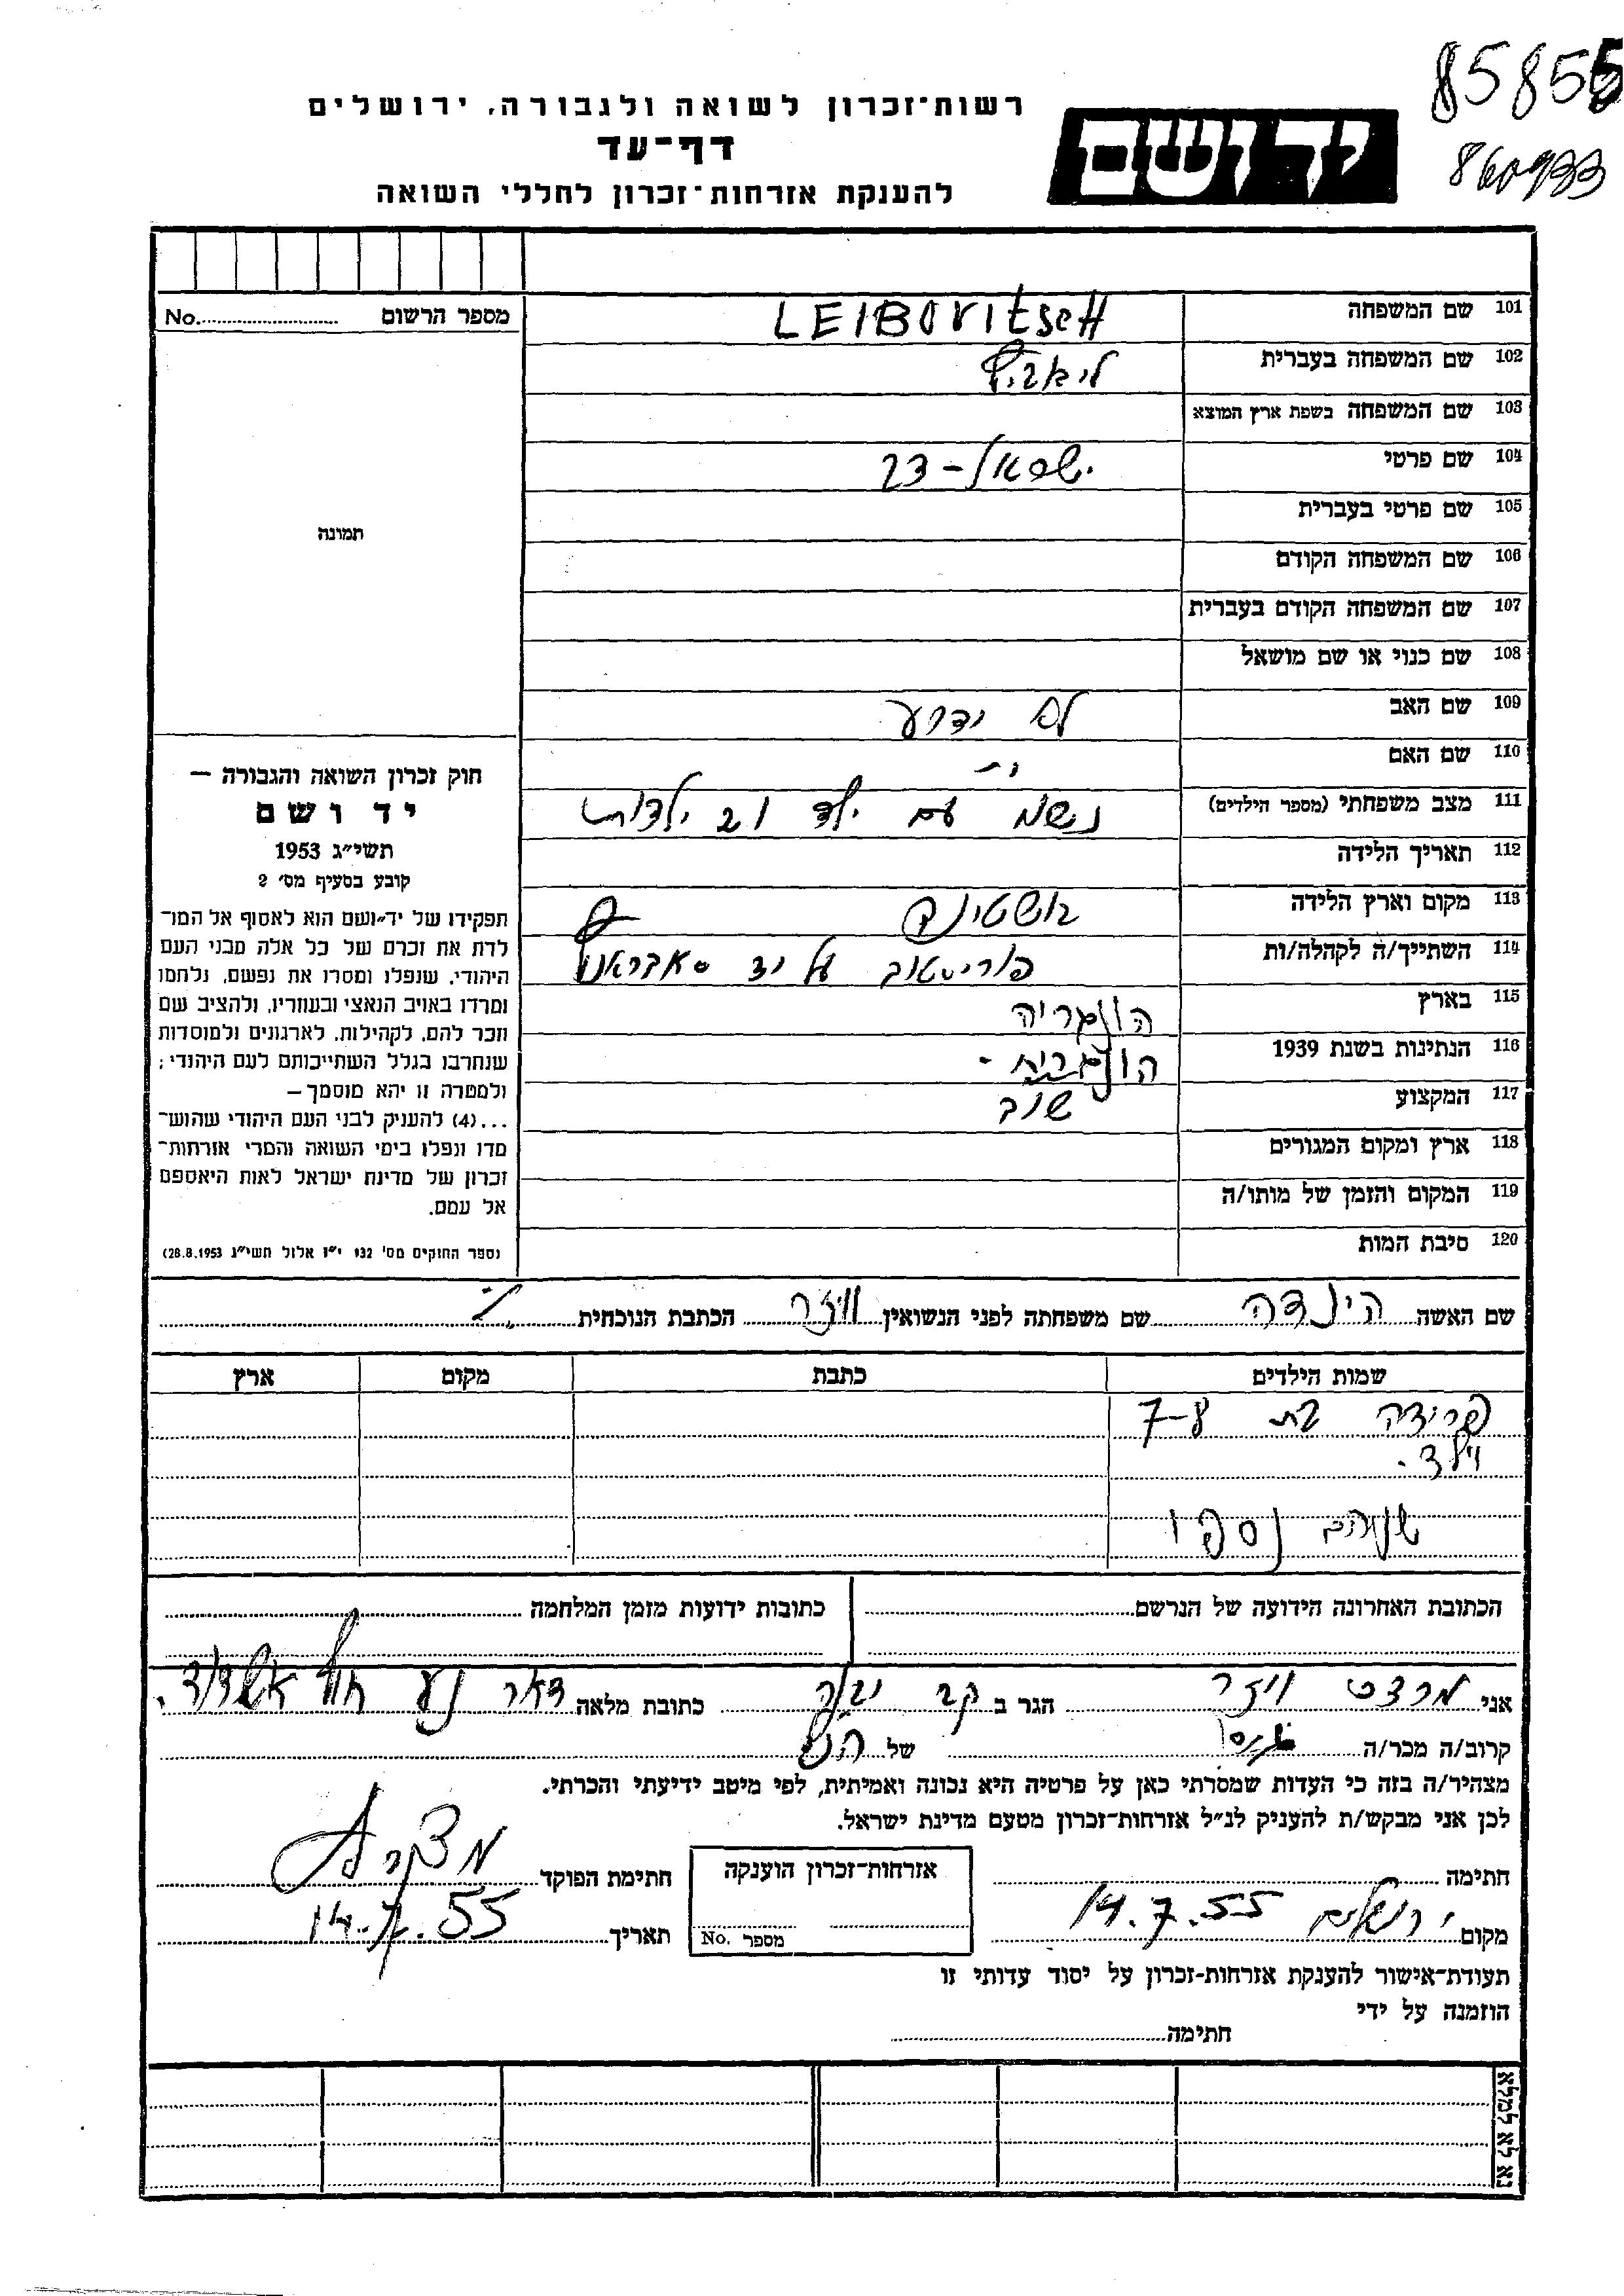 85855
860933
רשות־זכרון לשואה ולגבורה, ירושלים
דף־עד
להענקת אזרחות־זכרון לחללי השואה
יד ושם
מספר הרשום No.
תמונה
101 שם המשפחה LEIBOVITSCH
102 שם המשפחה בעברית
103 שם המשפחה בשפת ארץ המוצא
104 שם פרטי ישראל - דב
105 שם פרטי בעברית
106 שם המשפחה הקודם
107 שם המשפחה הקודם בעברית
108 שם כנוי או שם מושאל
109 שם האב לא ידוע
110 שם האם
111 מצב משפחתי (מספר הילדים) נשוי עם ילד ו 2 ילדות
112 תאריך הלידה
113 מקום וארץ הלידה
114 השתייך/ה לקהלה/ות על יד
115 בארץ הונגריה
116 הנתינות בשנת 1939 הונגרית -
117 המקצוע שוב
118 ארץ ומקום המגורים
119 המקום והזמן של מותו/ה
120 סיבת המות
חוק זכרון השואה והגבורה –
יד ושם
תשי״ג 1953
קובע בסעיף מס׳ 2
תפקידו של יד־ושם הוא לאסוף אל המו־
לדת את זכרם של כל אלה מבני העם
היהודי, שנפלו ומסרו את נפשם, נלחמו
ומרדו באויב הנאצי ובעוזריו, ולהציב שם
וזכר להם, לקהילות, לארגונים ולמוסדות
שנחרבו בגלל השתייכותם לעם היהודי;
ולמטרה זו יהא מוסמך –
...(4) להעניק לבני העם היהודי שהוש־
מדו ונפלו בימי השואה והמרי אזרחות־
זכרון של מדינת ישראל לאות היאספם
אל עמם.
(ספר החוקים מס׳ 132 י״ז אלול תשי״ג 28.8.1953)
שם האשה הינדה שם משפחתה לפני הנשואין וויזר הכתבת הנוכחית
שמות הילדים כתבת מקום ארץ
פרידה בת 7-8
וילד.
נספו
הכתובת האחרונה הידועה של הנרשם כתובות ידועות מזמן המלחמה
אני מרדכי ויזר הגר ב קב יבנה כתובת מלאה דאר נע חוף אשדוד.
קרוב/ה מכר/ה גיסו של הנ״ל
מצהיר/ה בזה כי העדות שמסרתי כאן על פרטיה היא נכונה ואמיתית, לפי מיטב ידיעתי והכרתי.
לכן אני מבקש/ת להעניק לנ״ל אזרחות־זכרון מטעם מדינת ישראל.
חתימה אזרחות־זכרון הוענקה חתימת הפוקד
מקום ירושלים 14.7.55 מספר No. תאריך 14.7.55
תעודת־אישור להענקת אזרחות־זכרון על יסוד עדותי זו
הוזמנה על ידי
חתימה
נא לא למלא